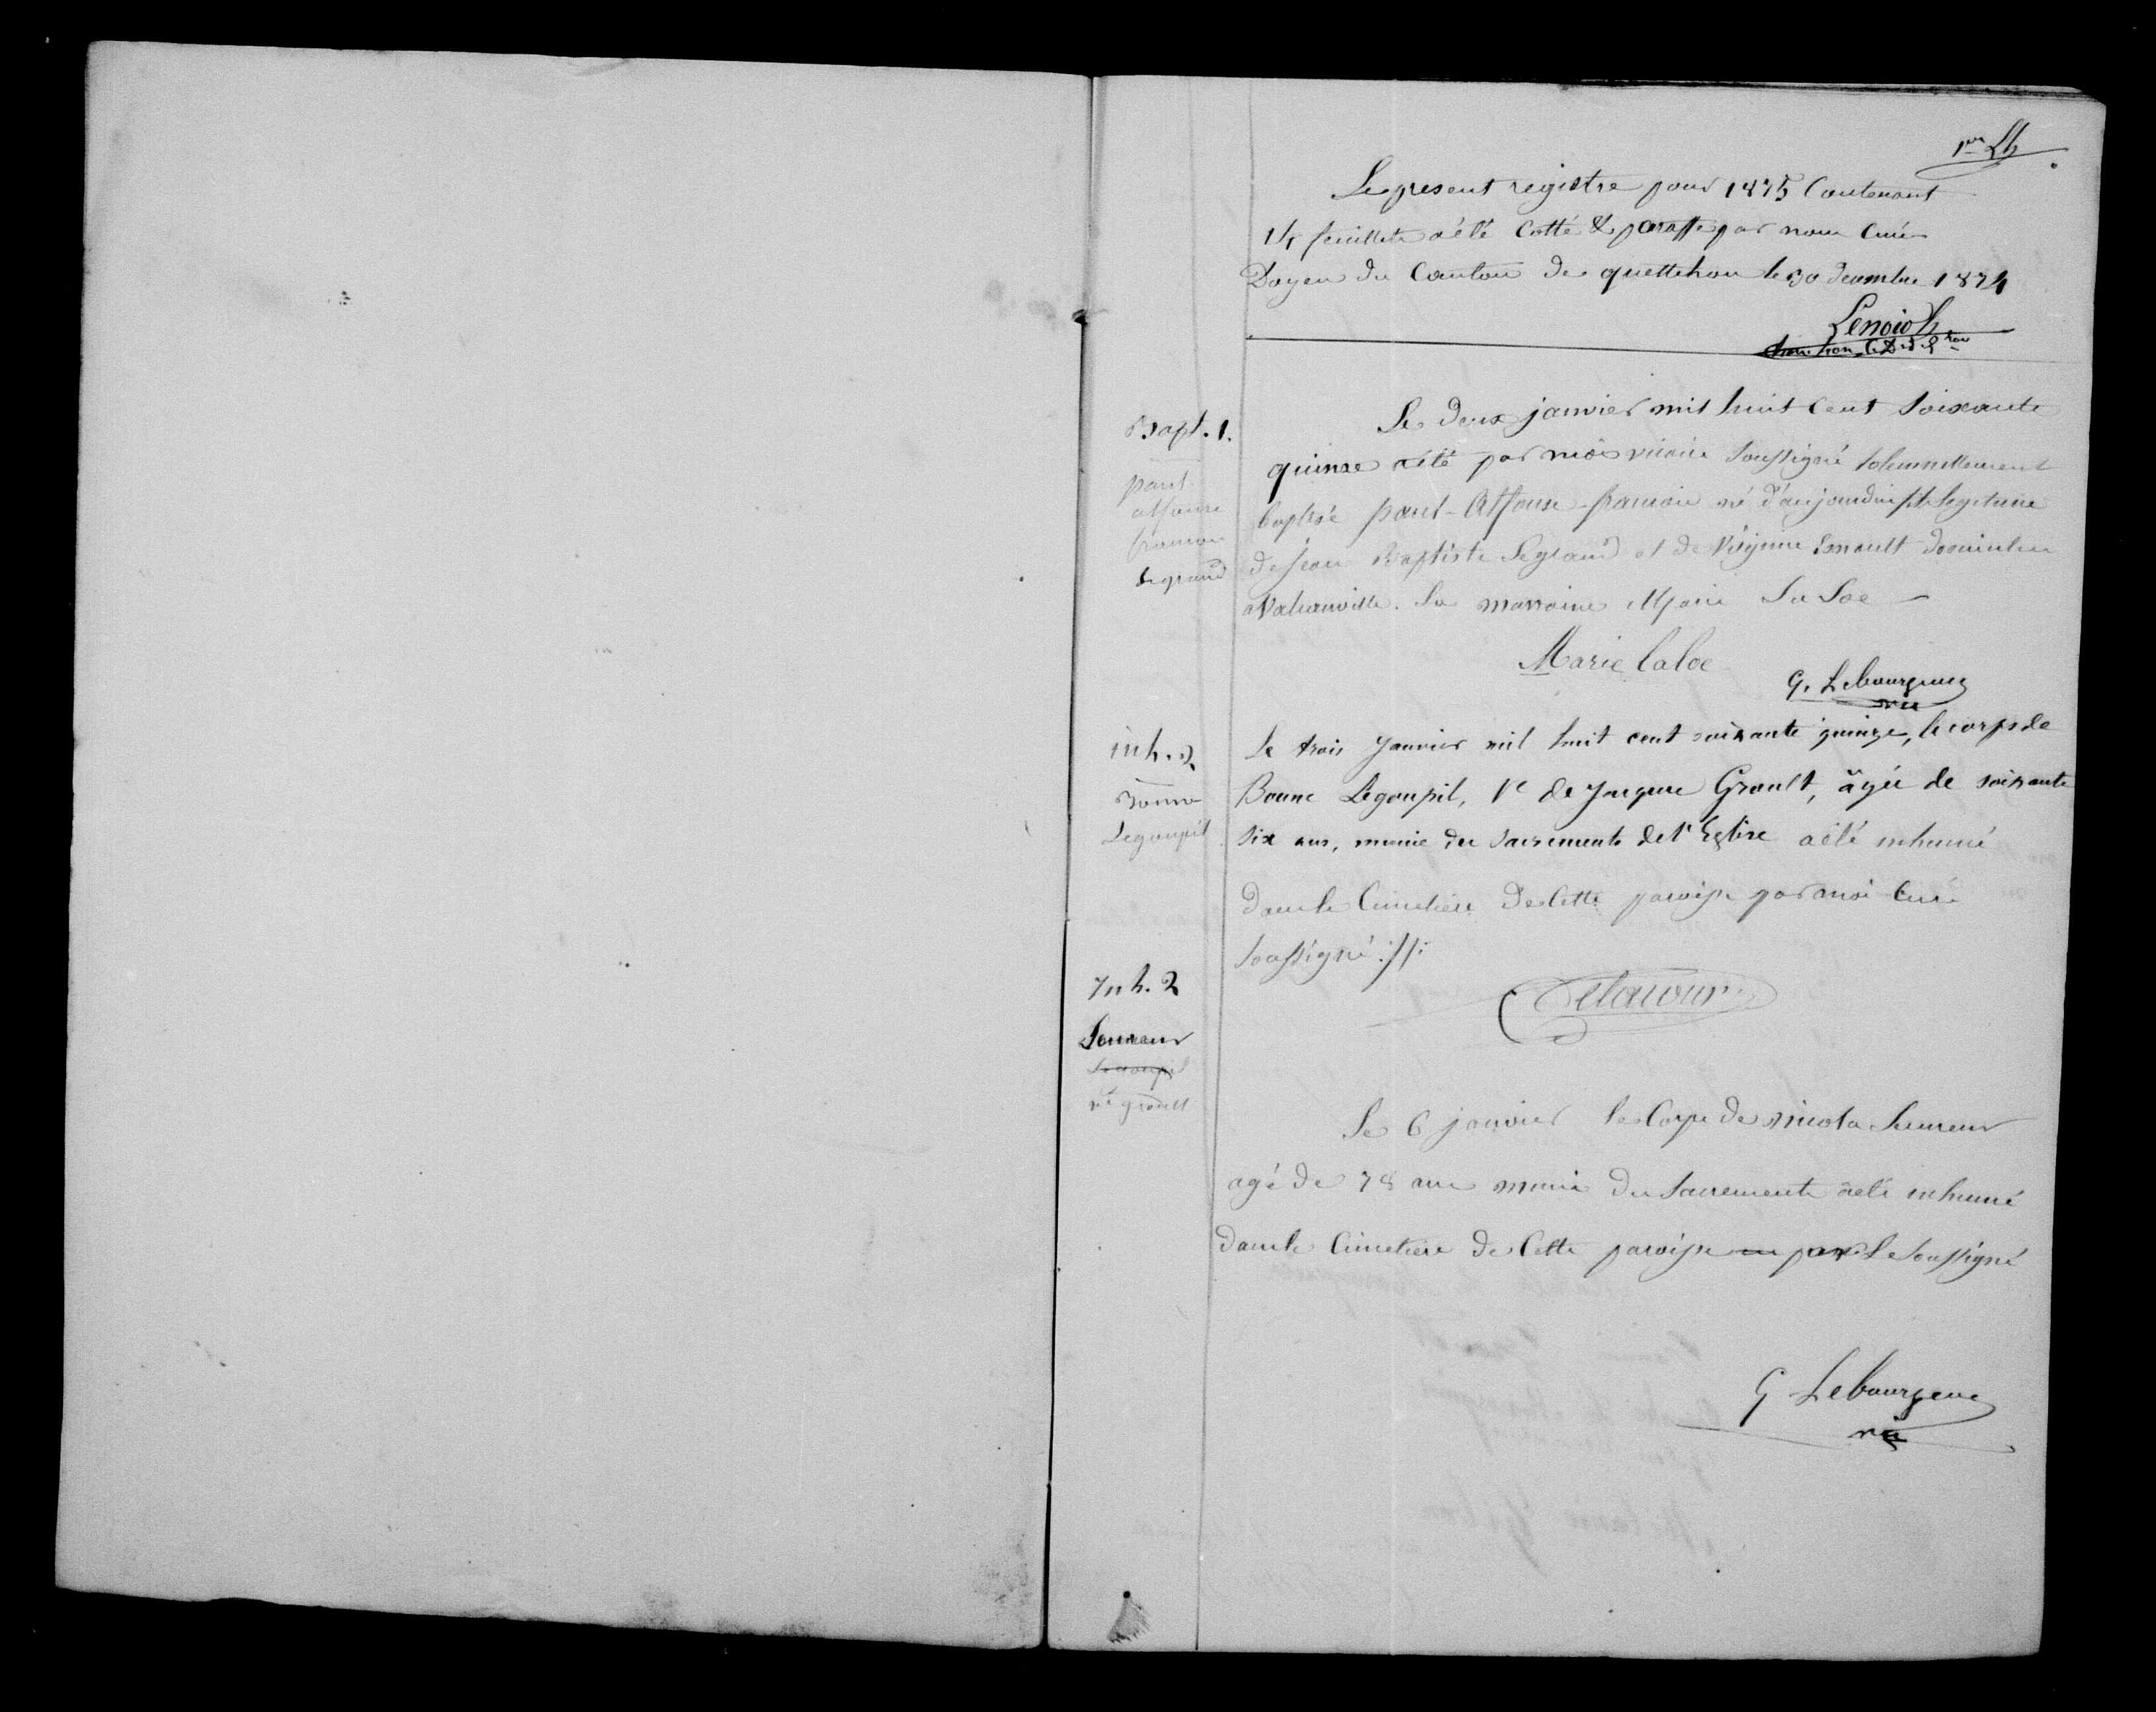 Le present registre pour 1875 Contenant
14 feuillets a été Cotté & paraffe par nous Curé
Doyen du Canton de quettehou le 30 decembre 1874
Bapt. 1.
paul
alfonse
francois
Legrand
Le deux janvier mil huit cent soixante
quinze a été par moi vicaire soussigné solemnellement
baptisé paul-Alfonse-francois né d'aujourdhui fils legitime
de jean Baptiste Legrand et de Virginie Esnault domiciliés
a Valcanville. La marraine Marie La Loe
Marie laloe
G. Lebourgeois
vic
inh. 2
Bonne
Legoupil
Le trois Janvier mil huit cent soixante quinze, le corps de
Bonne Legoupil, Ve de Jacques Groult, âgée de soixante
six ans, munie des sacrements de l'Eglise a été inhumé
dans le Cimetière de cette paroisse par moi Curé
soussigné ://:
Delacour
Inh. 2
Lereveur
Legoupil
ve groult
Le 6 janvier le Corps de nicolas
agé de 78 ans muni des sacrements a été inhumé
dans le Cimetière de Cette paroisse par Le soussigné
G Lebourgeois
vic